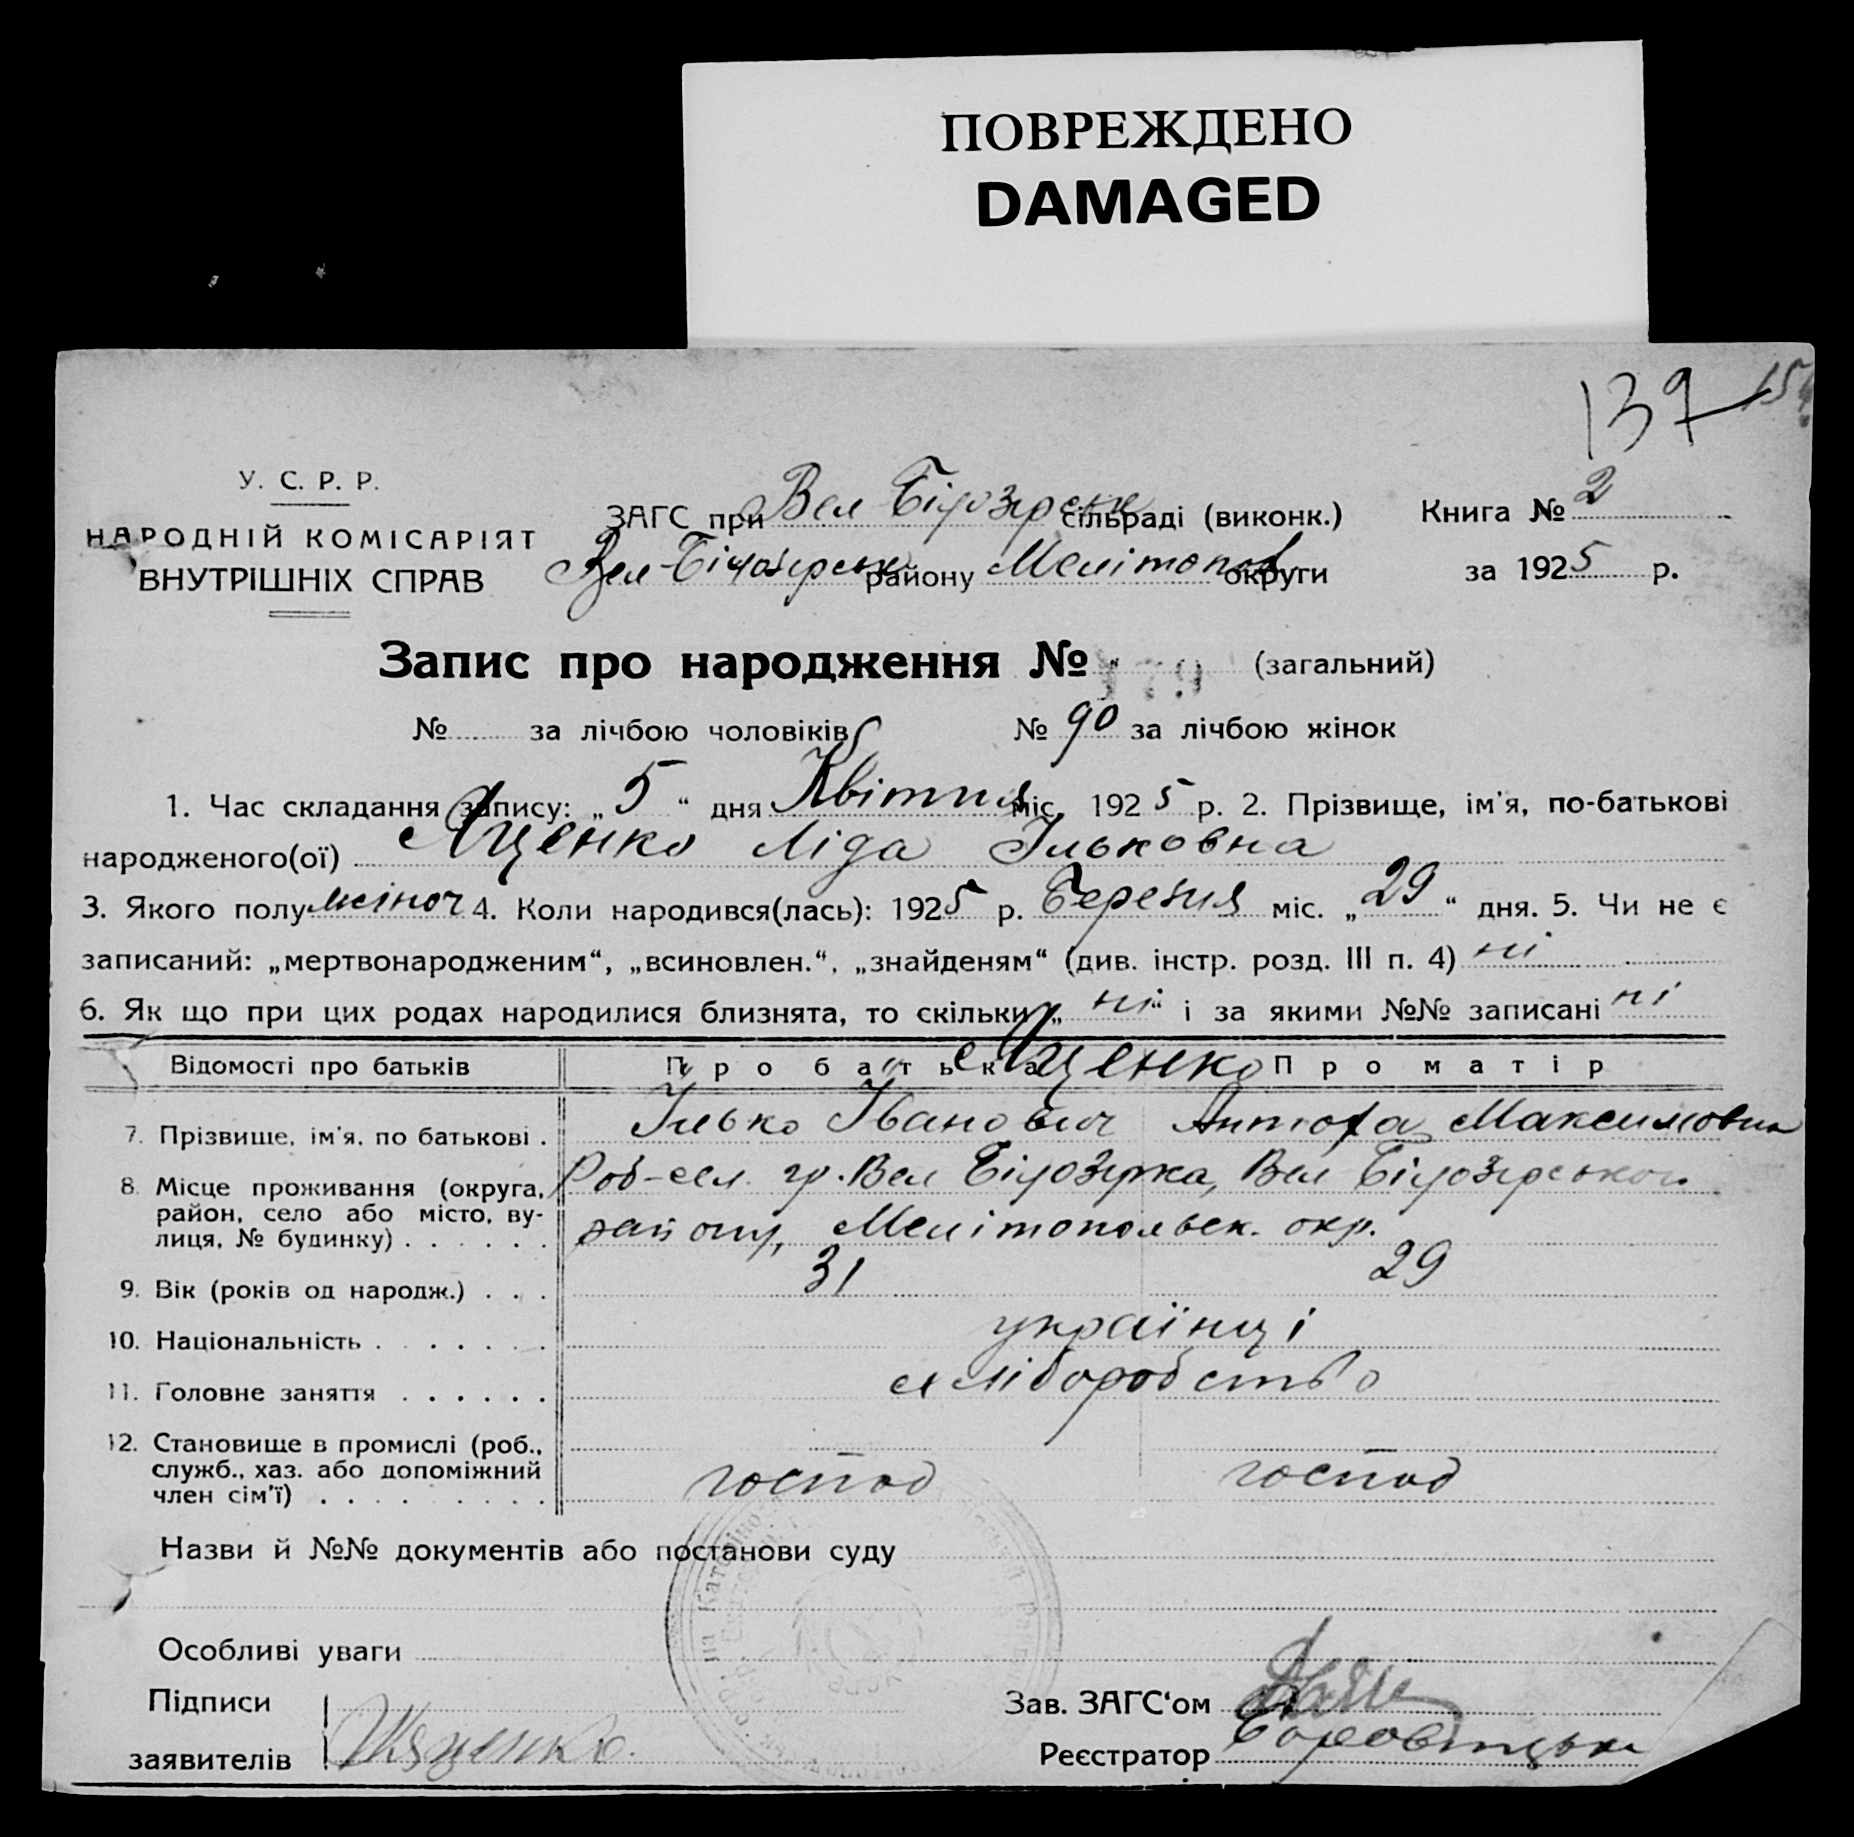 ПОВРЕЖДЕНО
DAMAGED
137
У. С. Р. Р.
НАРОДНІЙ КОМІСАРІЯТ
ВНУТРІШНІХ СПРАВ
ЗАГС при Вел Білозірськ сільраді (виконк.) Книга № 2
Вел-Білозірськ району Мелітопол округи за 1925 р.
Запис про народження № 179 (загальний)
№ за лічбою чоловіків № 90 за лічбою жінок
1. Час складання запису: „5“ дня Квітня міс. 1925 р. 2. Прізвище, ім'я, по-батькові
народженого(ої) Яценко Ліда Ільковна
3. Якого полу жіноч 4. Коли народився(лась): 1925 р. Березня міс. „29“ дня. 5. Чи не є
записаний: „мертвонародженим“, „всиновлен.“, „знайденям“ (див. інстр. розд. III п. 4) ні
6. Як що при цих родах народилися близнята, то скільки „ні“ і за якими №№ записані ні
Відомості про батьків Про батька Яценко Про матір
7. Прізвище, ім'я, по батькові . Ілько Іванович Максимовна
8. Місце проживання (округа, район, село або місто, вулиця, № будинку) . . . . . . Роб-сел. гр. Вел Білозірка, Вел Білозірського
району, Мелітопольск. окр.
9. Вік (років од народж.) . . . 31 29
10. Національність . . . . . . . українці
11. Головне заняття . . . . . . хліборобство
12. Становище в промислі (роб., служб., хаз. або допоміжний член сім'ї) . . . . . . . . . господ господ
Назви й №№ документів або постанови суду
Особливі уваги
Підписи
заявителів
Зав. ЗАГС‘ом
Реєстратор